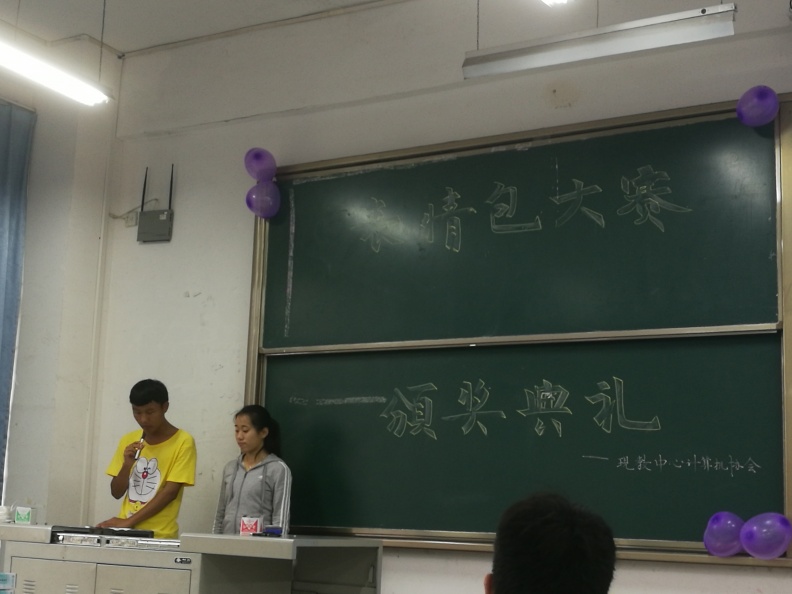 表情包大赛
颁奖典礼
——现教中心计算机协会